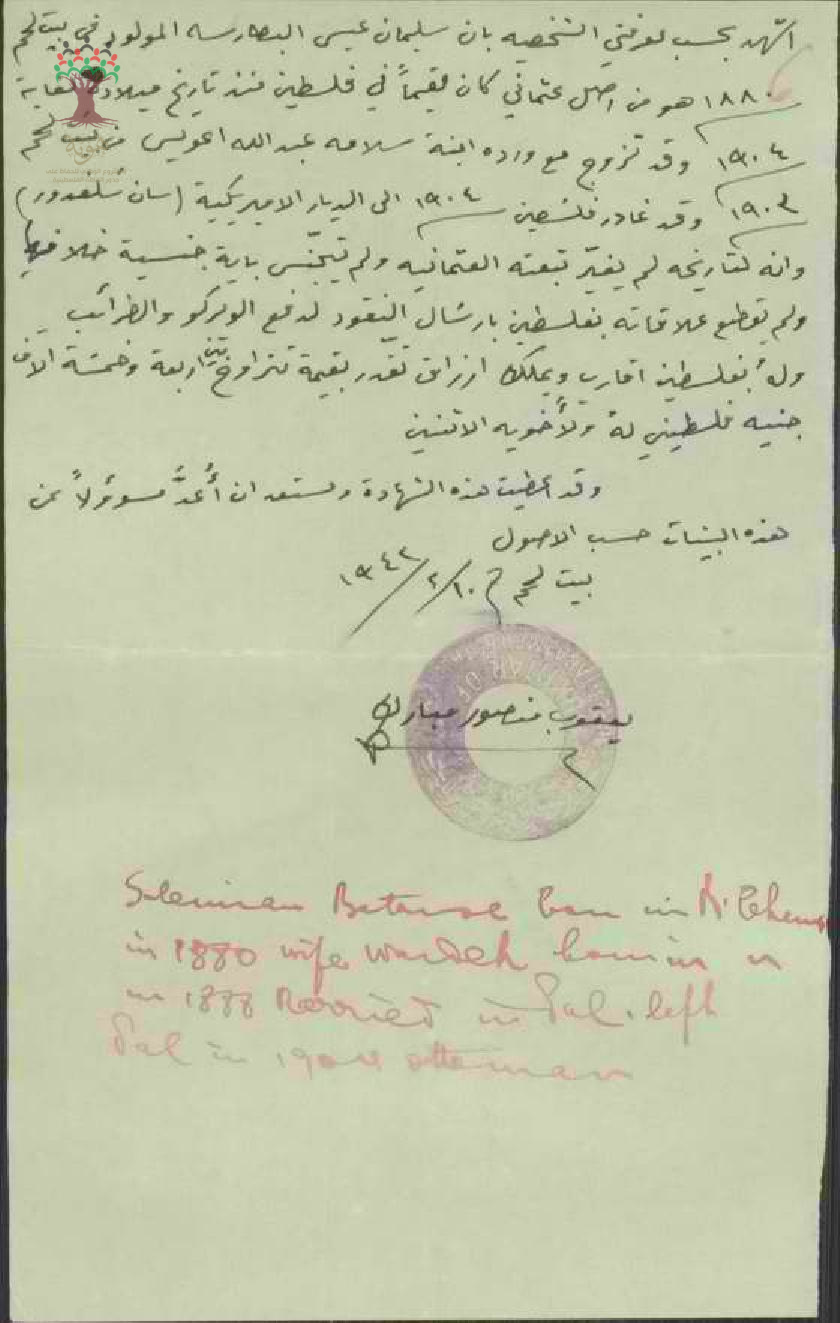 اشهد بحسب معرفتي الشخصيه بان سليمان عيسى البطارسه المولود في بيت لحم
١٨٨٠ هو من اصل عثماني كان مقيماً في فلسطين منذ تاريخ ميلاده لغاية
١٩٠٤ وقد تزوج مع ورده ابنة سلامه عبد الله اعويس من بيت لحم
١٩٠٣ وقد غادر فلسطين ١٩٠٤ الى الديار الاميريكية (سان سلفدور)
وانه لتاريخه لم يغيّر تبعته العثمانيه ولم يتجنّس باية جنسية خلافها
ولم يقطع علاقاته بفلسطين بارسال النقود لدفع الويركو والضرائب
ولهُ بفلسطين اقارب ويملك ارزاق تقدر بقيمة تتراوح بين اربعة وخمسة الاف
جنيه فلسطيني لهُ ولأخويه الاثنين
وقد اعطيت هذه الشهادة ومستعد ان أُعدَّ مسؤولاً عن
هذه البينات حسب الاصول
بيت لحم في ١٠/٢/١٩٤٢
يعقوب منصور مبارك
Sleiman Batarse born in B. Lehem
in 1880 wife Wardeh born in
in 1888 Married in Pal. left
Pal in 1904 ottoman